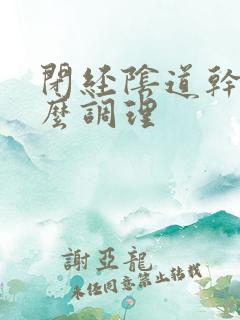 閉經陰道幹
麼調理
謝亞龍
未經同意禁止轉載